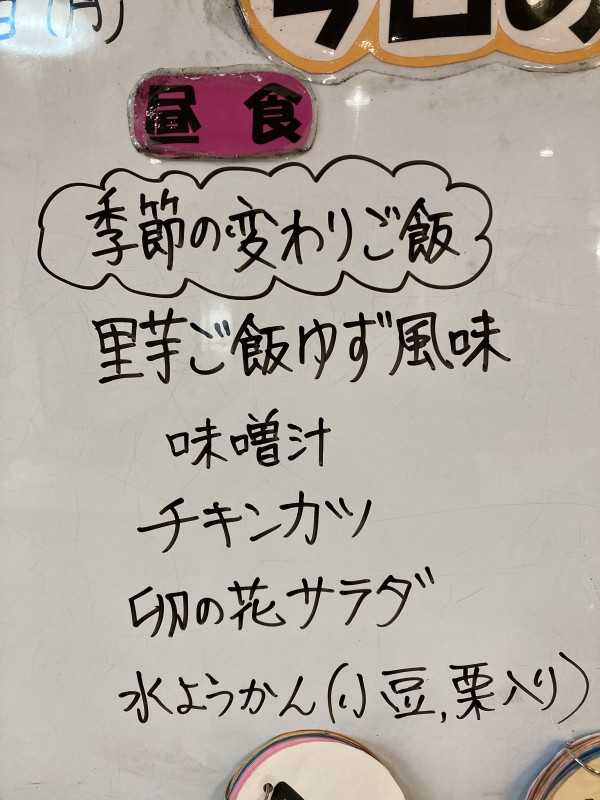 (月)
今日の
昼食
季節の変わりご飯
里芋ご飯ゆず風味
味噌汁
チキンカツ
卯の花サラダ
水ようかん(小豆,栗入り)